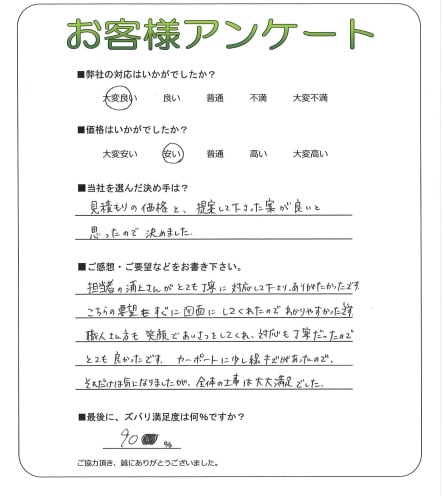 お客様アンケート
■弊社の対応はいかがでしたか?
大変良い 良い 普通 不満 大変不満
■価格はいかがでしたか?
大変安い 安い 普通 高い 大変高い
■当社を選んだ決め手は?
見積もりの価格と、提案して下さった案が良いと
思ったので決めました.
■ご感想・ご要望などをお書き下さい。
担当者の浦上さんがとても丁寧に対応して下さり、ありがたかったです.
こちらの要望もすぐに図面にしてくれたのでわかりやすかったです.
職人さん方も笑顔であいさつをしてくれ、対応も丁寧だったので
とても良かったです. カーポートに少し線キズがあったので、
それだけは気になりましたが、全体の工事は大大満足でした.
■最後に、ズバリ満足度は何%ですか?
90 %
ご協力頂き、誠にありがとうございました。